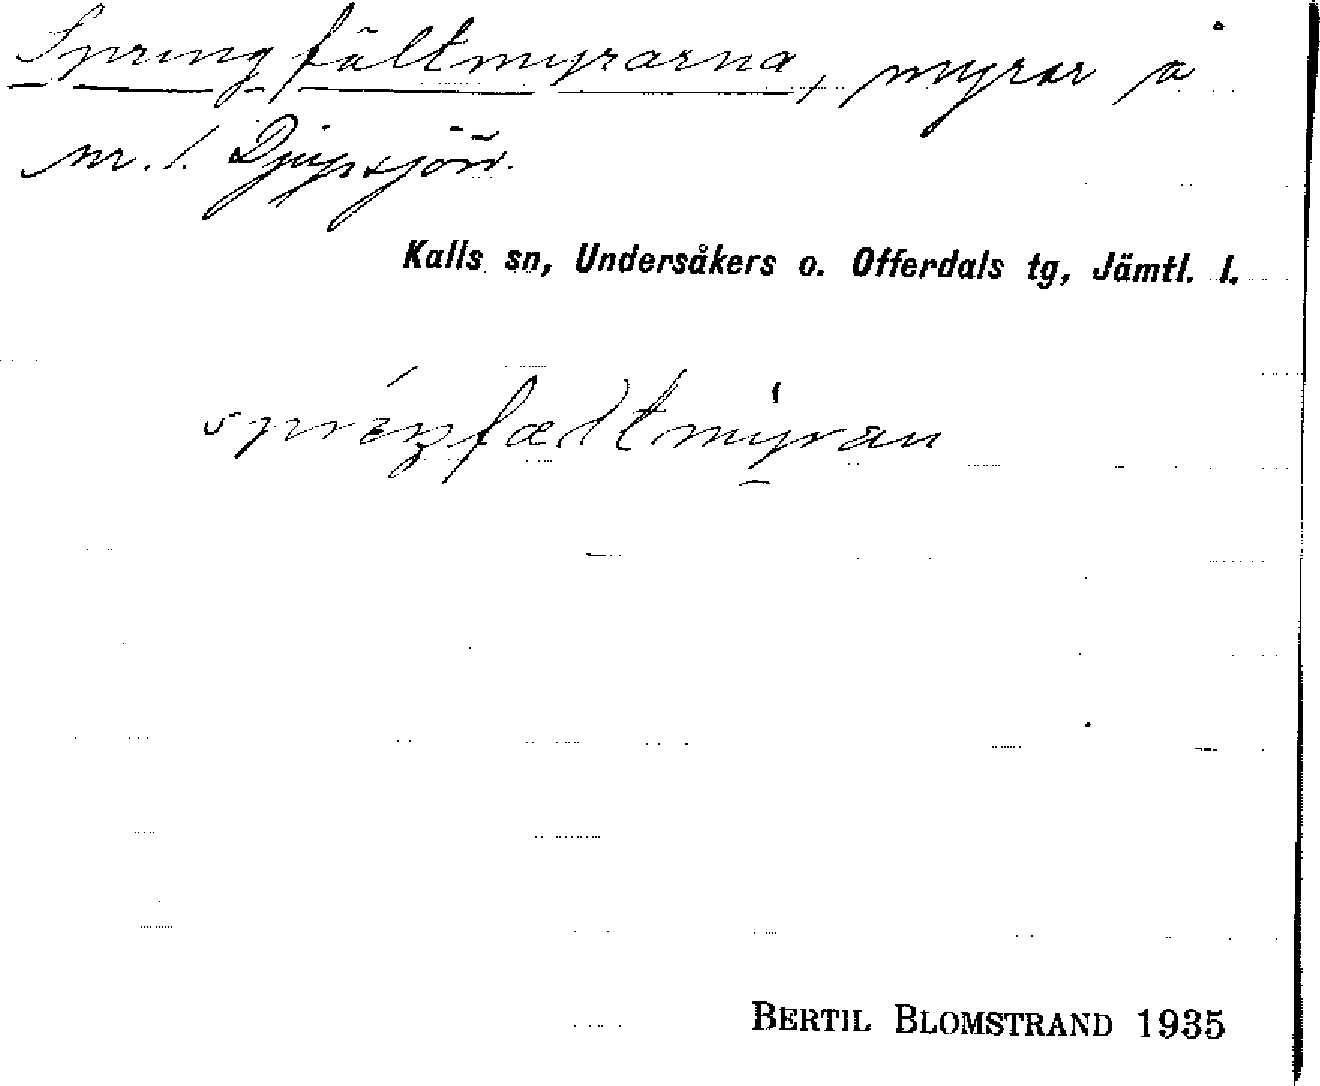 Springfältmyrarna, myrar å
nr. 1. Djupsjön.
Kalls sn, Undersåkers o. Offerdals tg, Jämtl. l.
BERTIL BLOMSTRAND 1935